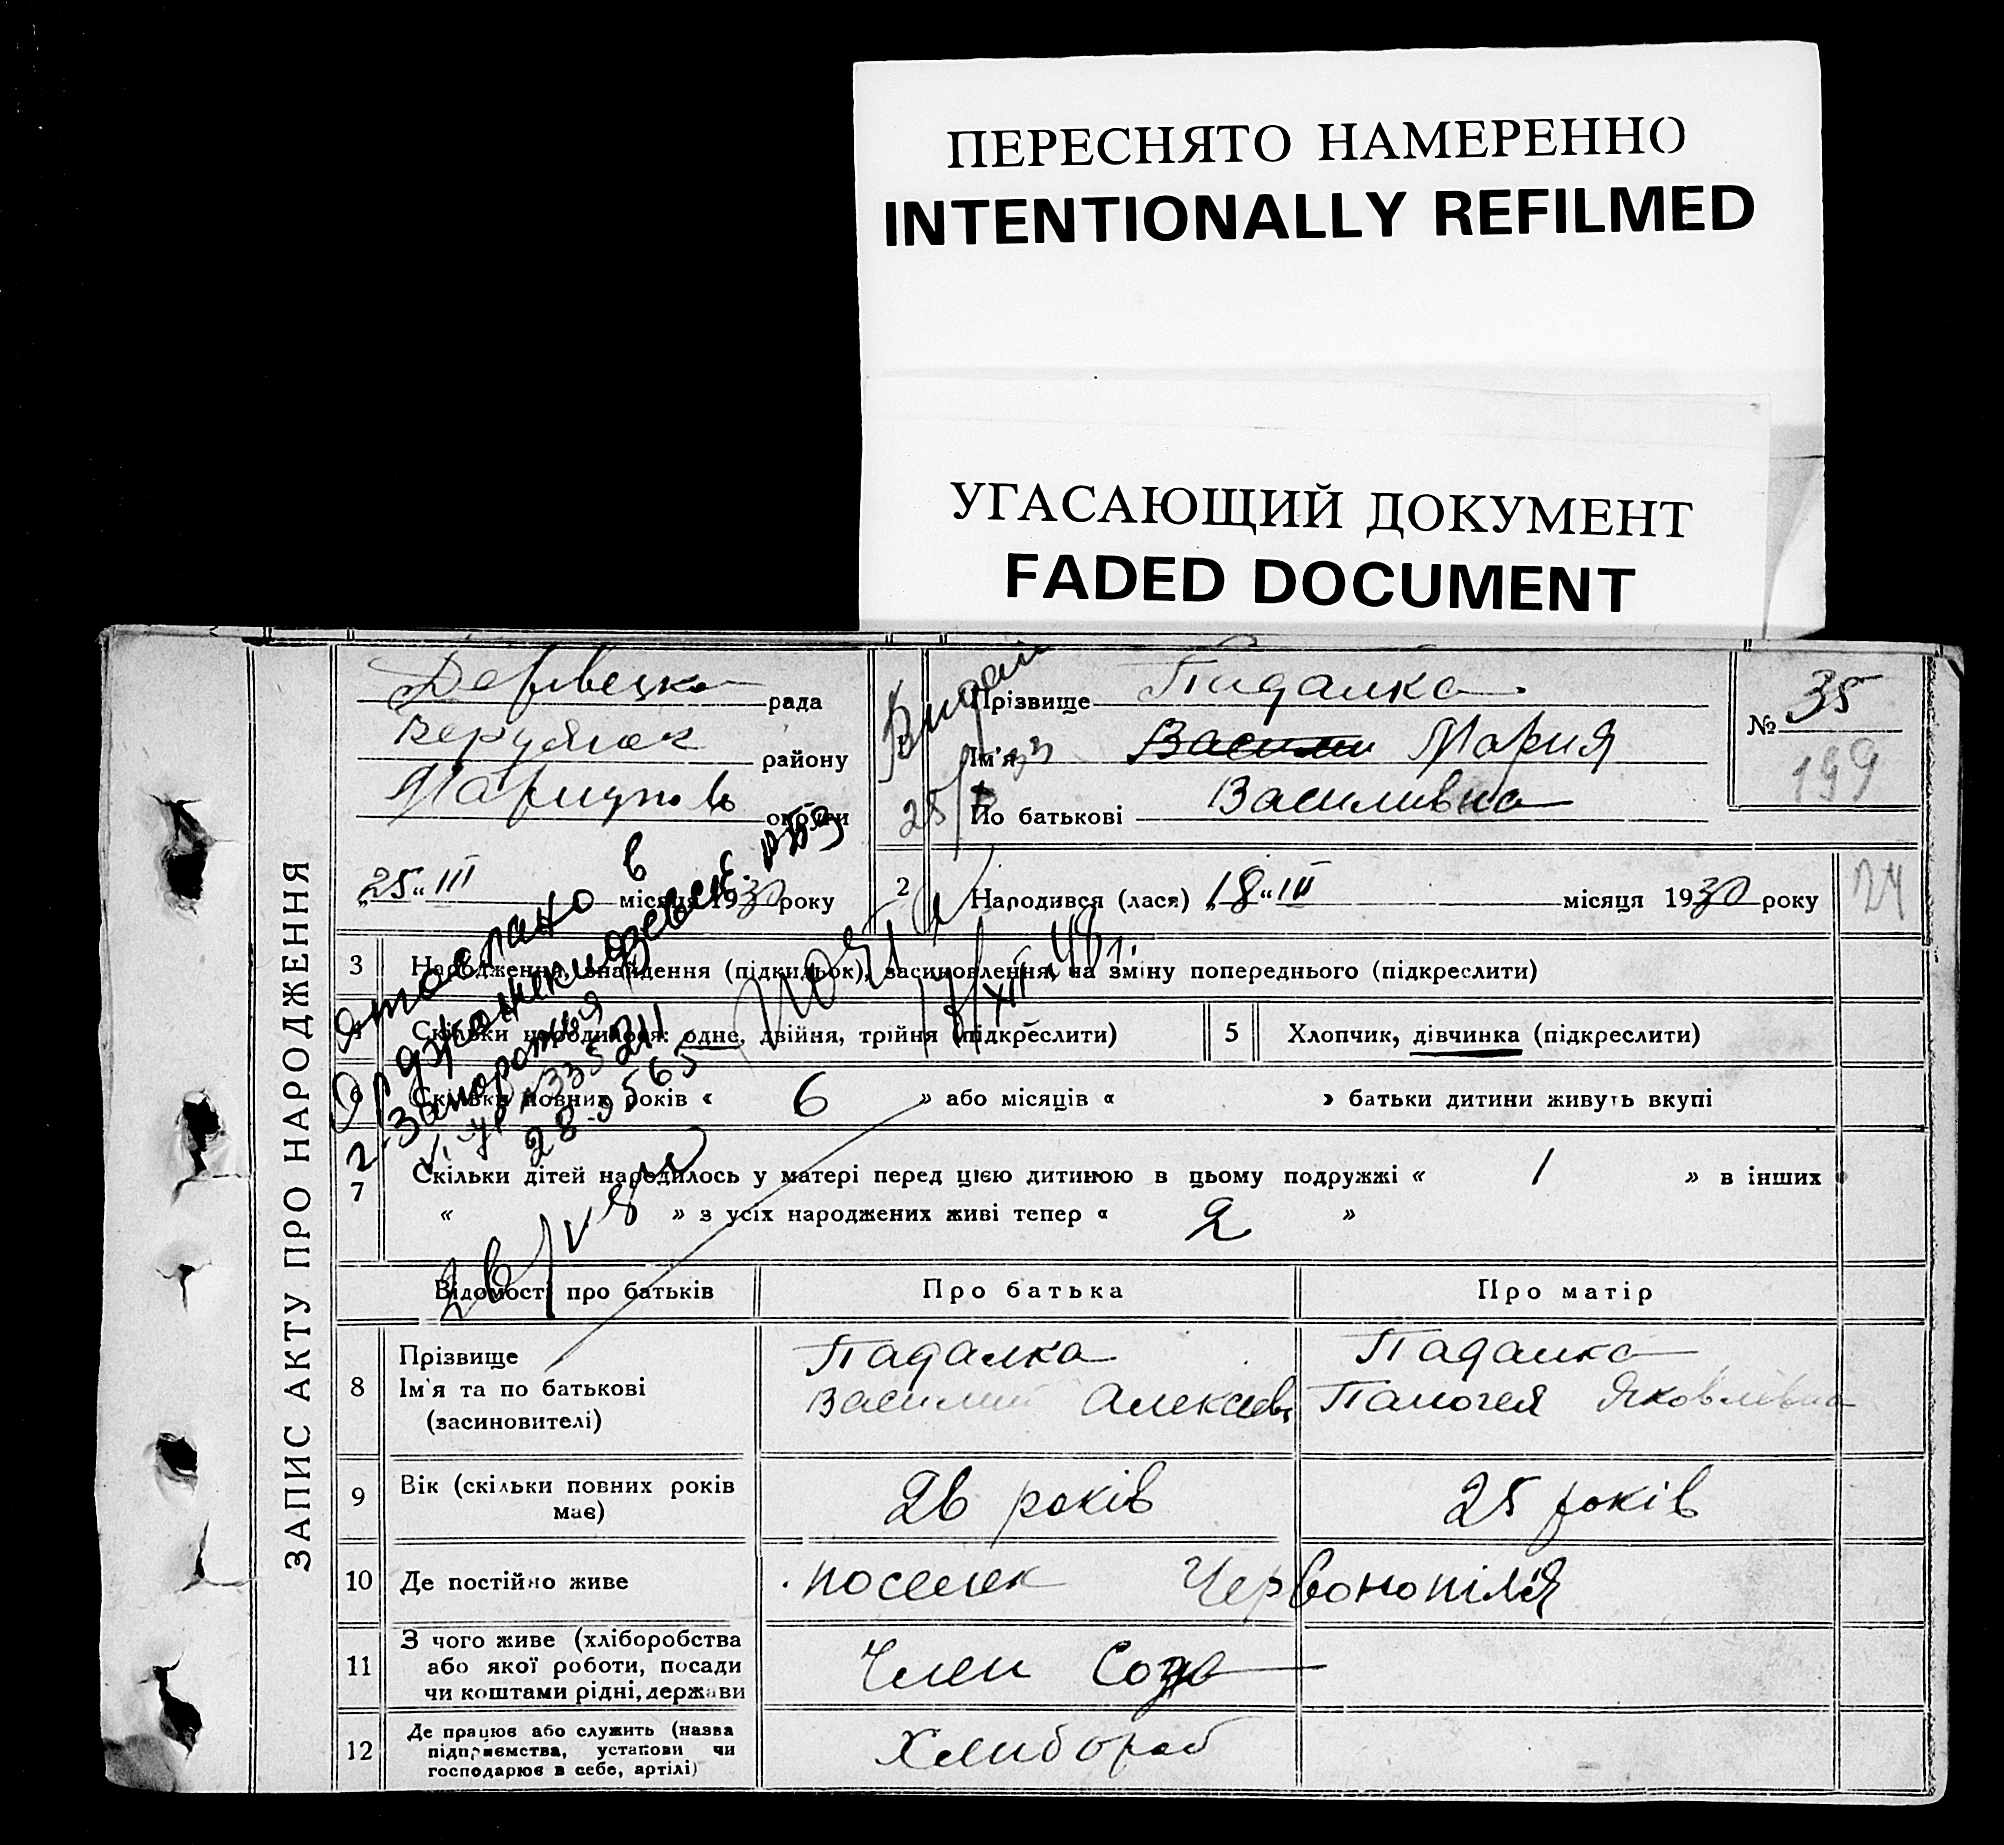 ПЕРЕСНЯТО НАМЕРЕННО
INTENTIONALLY REFILMED
УГАСАЮЩИЙ ДОКУМЕНТ
FADED DOCUMENT
ЗАПИС АКТУ ПРО НАРОДЖЕННЯ
рада
району
Мариупольс округи
„25“ III місяця 1930 року
Прізвище Пидалка
Ім'я Василий Мария
По батькові Василивна
№ 35
199
24
2 Народився (лася) „18“ III місяця 1930 року
3 Народження, знайдення (підкидьок), засиновлення, на зміну попереднього (підкреслити)
4 Скільки народилося: одне, двійня, трійня (підкреслити)
5 Хлопчик, дівчинка (підкреслити)
6 Скільки повних років « 6 » або місяців « » батьки дитини живуть вкупі
7 Скільки дітей народилось у матері перед цією дитиною в цьому подружжі « 1 » в інших «
« » з усіх народжених живі тепер « 2 »
отослано в
Орджоникидзевск.
г. Запорожья
28-9565
Відомості про батьків
Про батька
Про матір
8 Прізвище Падалка Падалка
Ім'я та по батькові Василий Алексеев Яковлевна
(засиновителі)
9 Вік (скільки повних років має) 26 років 25 років
10 Де постійно живе поселек Червонопілля
11 З чого живе (хліборобства
або якої роботи, посади
чи коштами рідні, держави
Член Соза
12 Де працює або служить (назва
підприємства, установи чи
господарює в себе, артілі)
Хлибораб